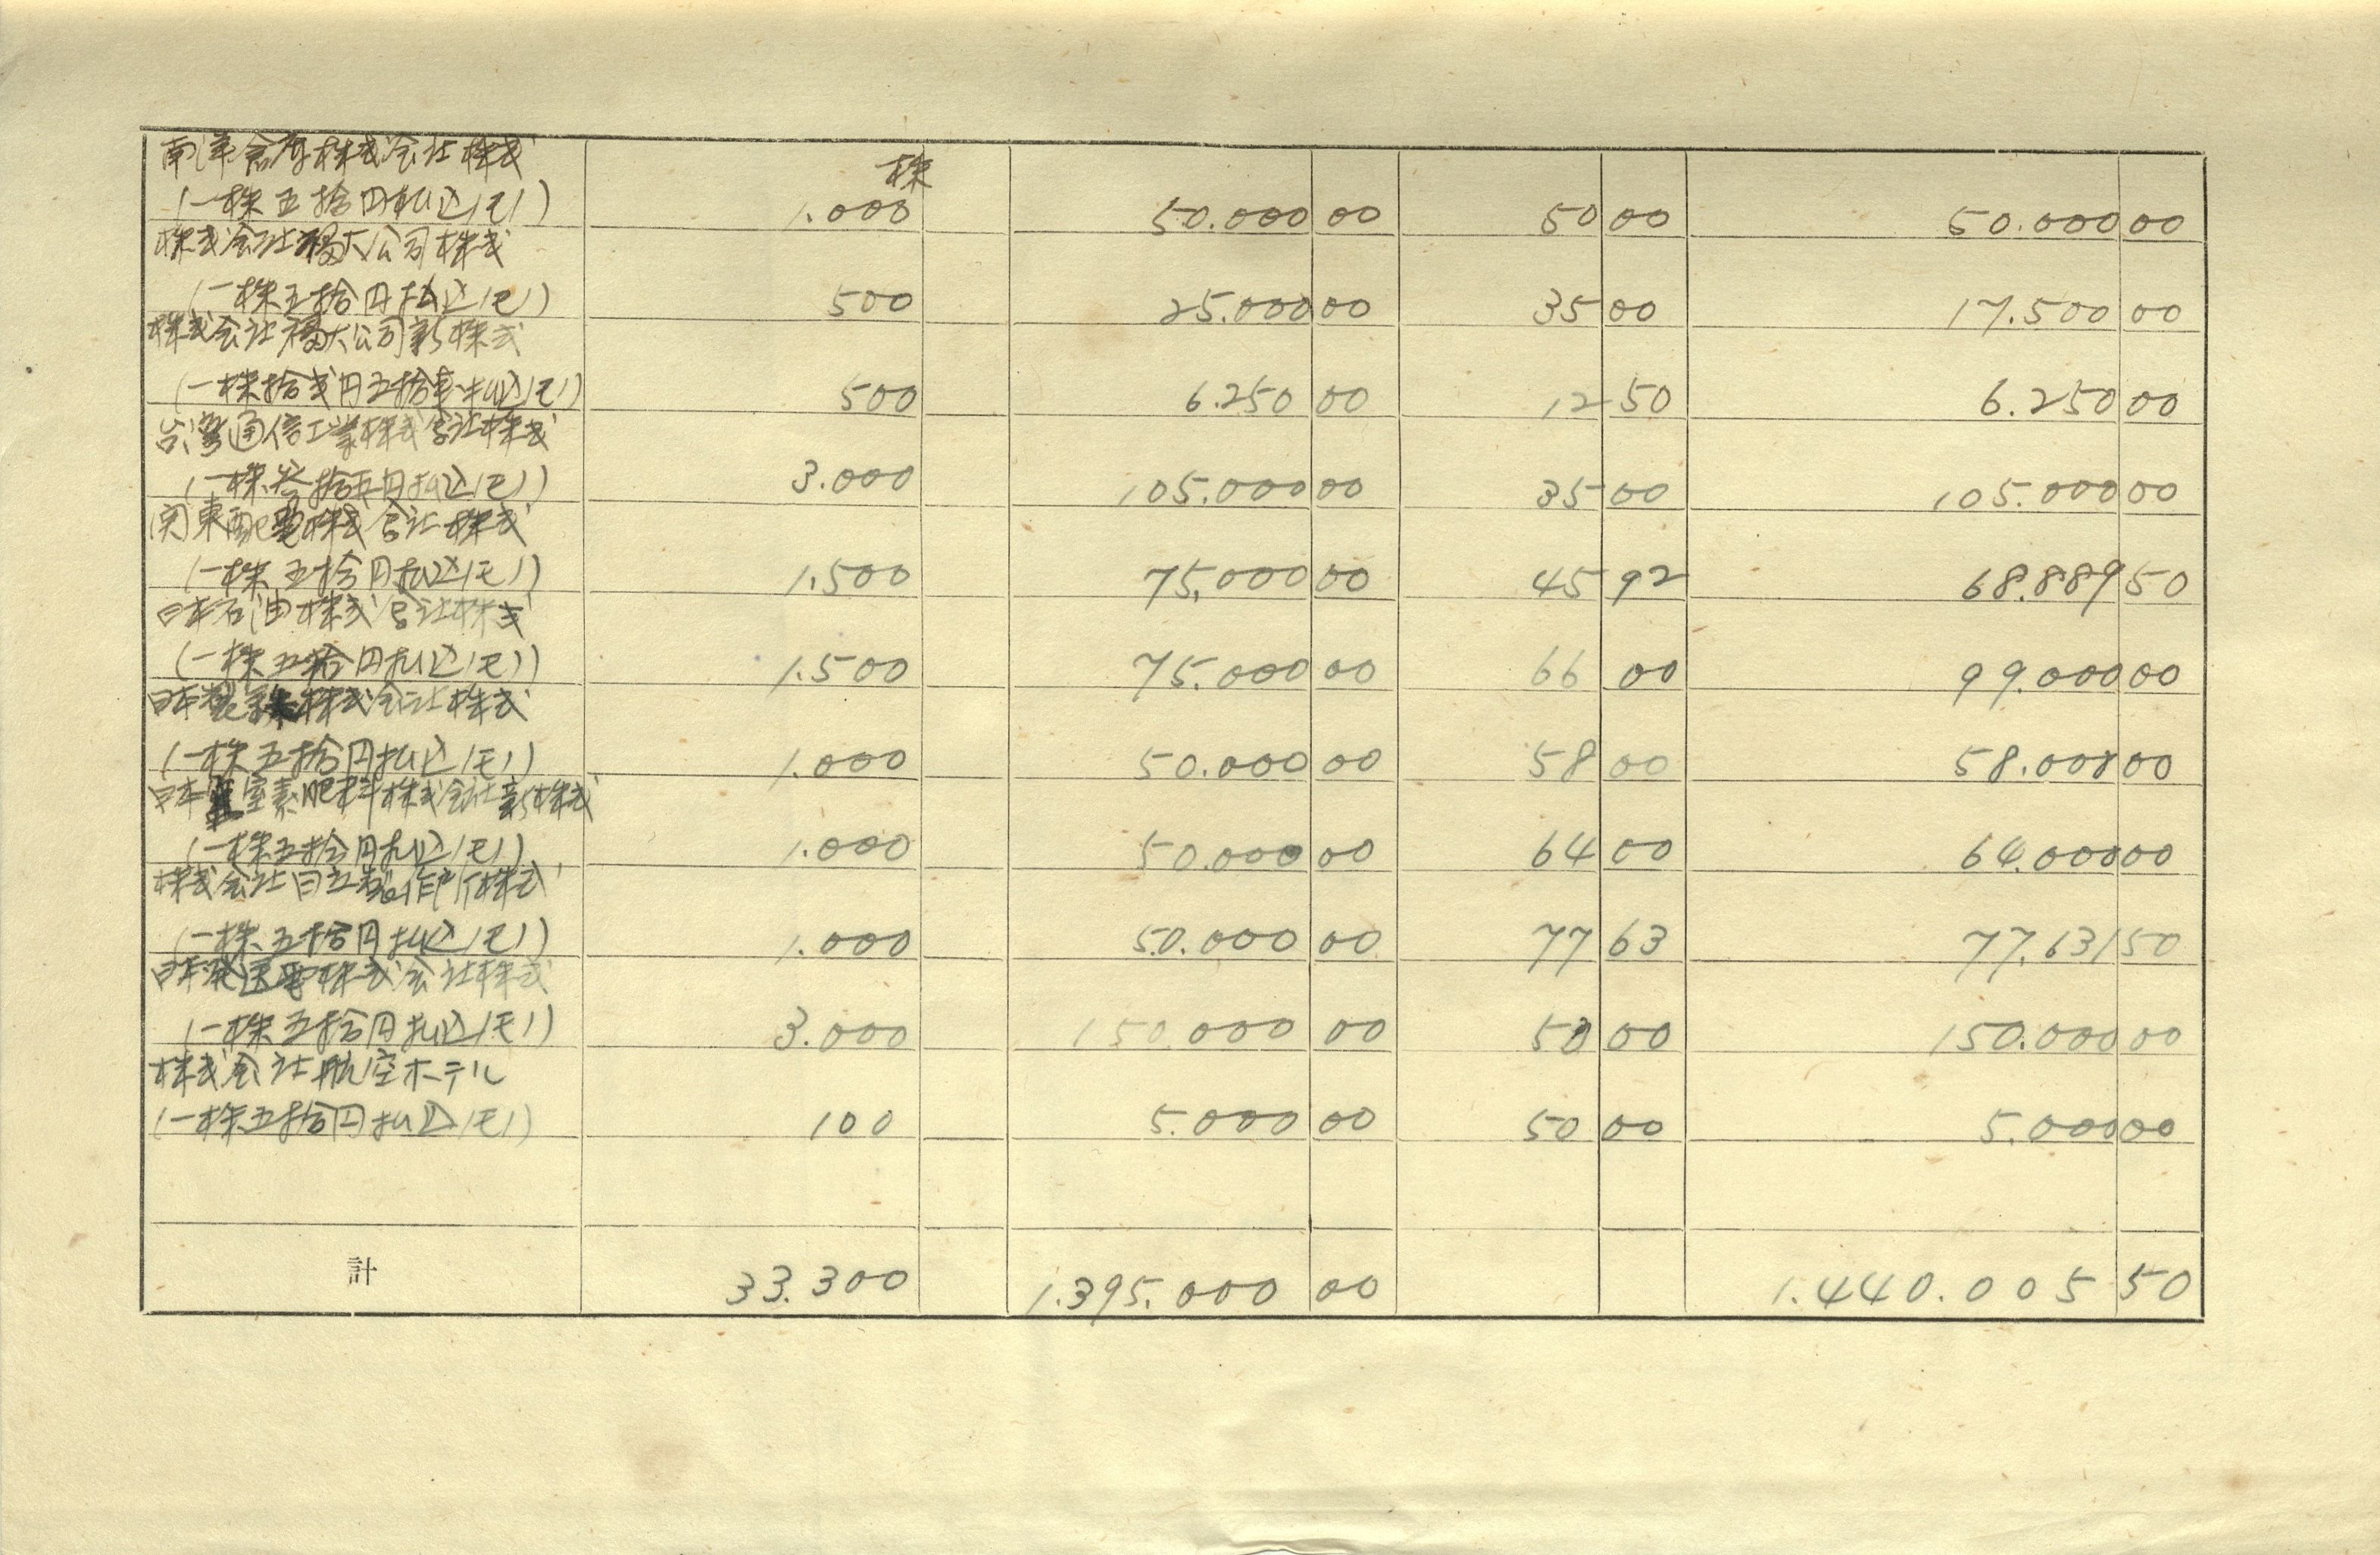 南洋倉庫株式会社株式
株
(一株五拾円払込済) 1.000 50.000 00 50 00 50.000 00
株式会社福大公司株式
(一株五拾円払込済) 500 25.000 00 35 00 17.500 00
株式会社福大公司新株式
(一株拾弐円五拾銭払込済) 500 6.250 00 12 50 6.250 00
台湾通信工業株式会社株式
(一株参拾五円払込済) 3.000 105.000 00 35 00 105.000 00
関東配電株式会社株式
(一株五拾円払込済) 1.500 75.000 00 45 92 68.889 50
日本石油株式会社株式
(一株五拾円払込済) 1.500 75.000 00 66 00 99.000 00
日本製鉄株式会社株式
(一株五拾円払込済) 1.000 50.000 00 58 00 58.000 00
日本窒素肥料株式会社新株式
(一株五拾円払込済) 1.000 50.000 00 64 00 64.000 00
株式会社日立製作所株式
(一株五拾円払込済) 1.000 50.000 00 77 63 77.631 50
日本発送電株式会社株式
(一株五拾円払込済) 3.000 150.000 00 50 00 150.000 00
株式会社航空ホテル
(一株五拾円払込済) 100 5.000 00 50 00 5.000 00
計 33.300 1.395.000 00 1.440.005 50